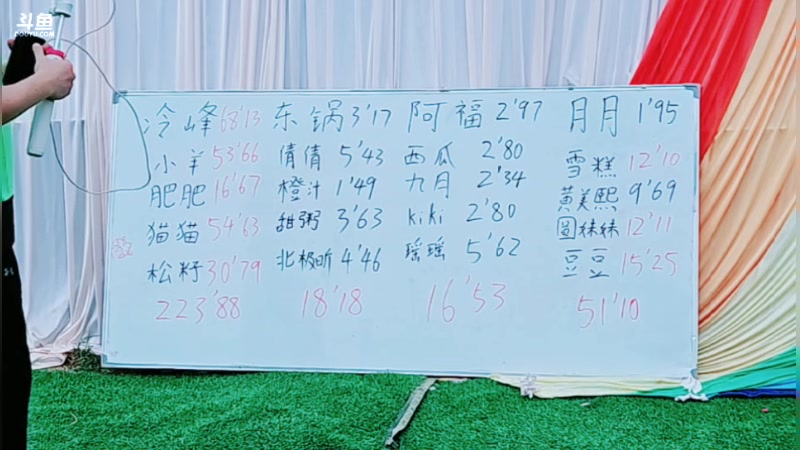 斗鱼
DOUYU.COM
冷峰 68'13 东锅 3'17 阿福 2'97 月月 1'95
小羊 53'66 倩倩 5'43 西瓜 2'80 雪糕 12'10
肥肥 16'67 橙汁 1'49 九月 2'34 黄美熙 9'69
猫猫 54'63 甜粥 3'63 kiki 2'80 圆妹妹 12'11
松籽 30'79 北极昕 4'46 瑶瑶 5'62 豆豆 15'25
223'88 18'18 16'53 51'10